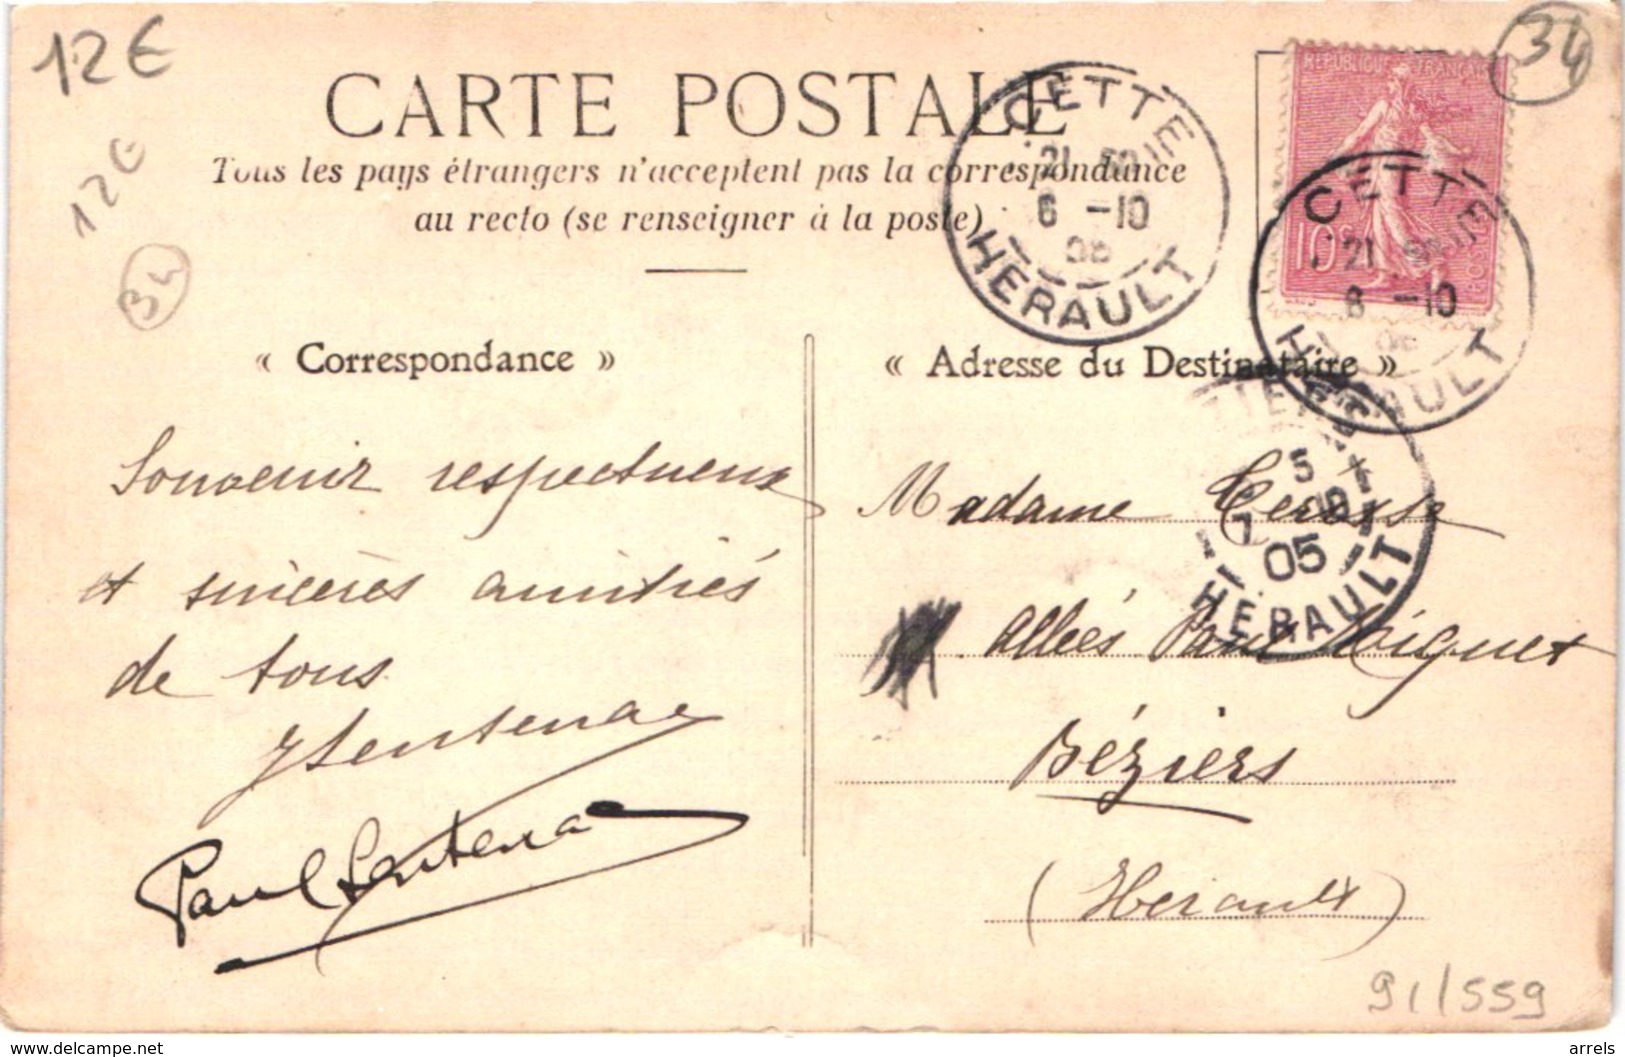 12€
34
RÉPUBLIQUE FRANÇAISE
CARTE POSTALE
CETTE
21 50
6 -10
HERAULT
12€
Tous les pays étrangers n'acceptent pas la correspondance
au recto (se renseigner à la poste)
34
10c
POSTES
CETTE
21
6 -10
HERAULT
« Correspondance »
« Adresse du Destinataire »
5
7
05
HERAULT
Souvenir respectueux
et sincères amitiés
de tous
Sentenac
Paul Sentenac
Madame
Allées Paul Riquet
Béziers
(Hérault)
91/559
www.delcampe.net
arrels